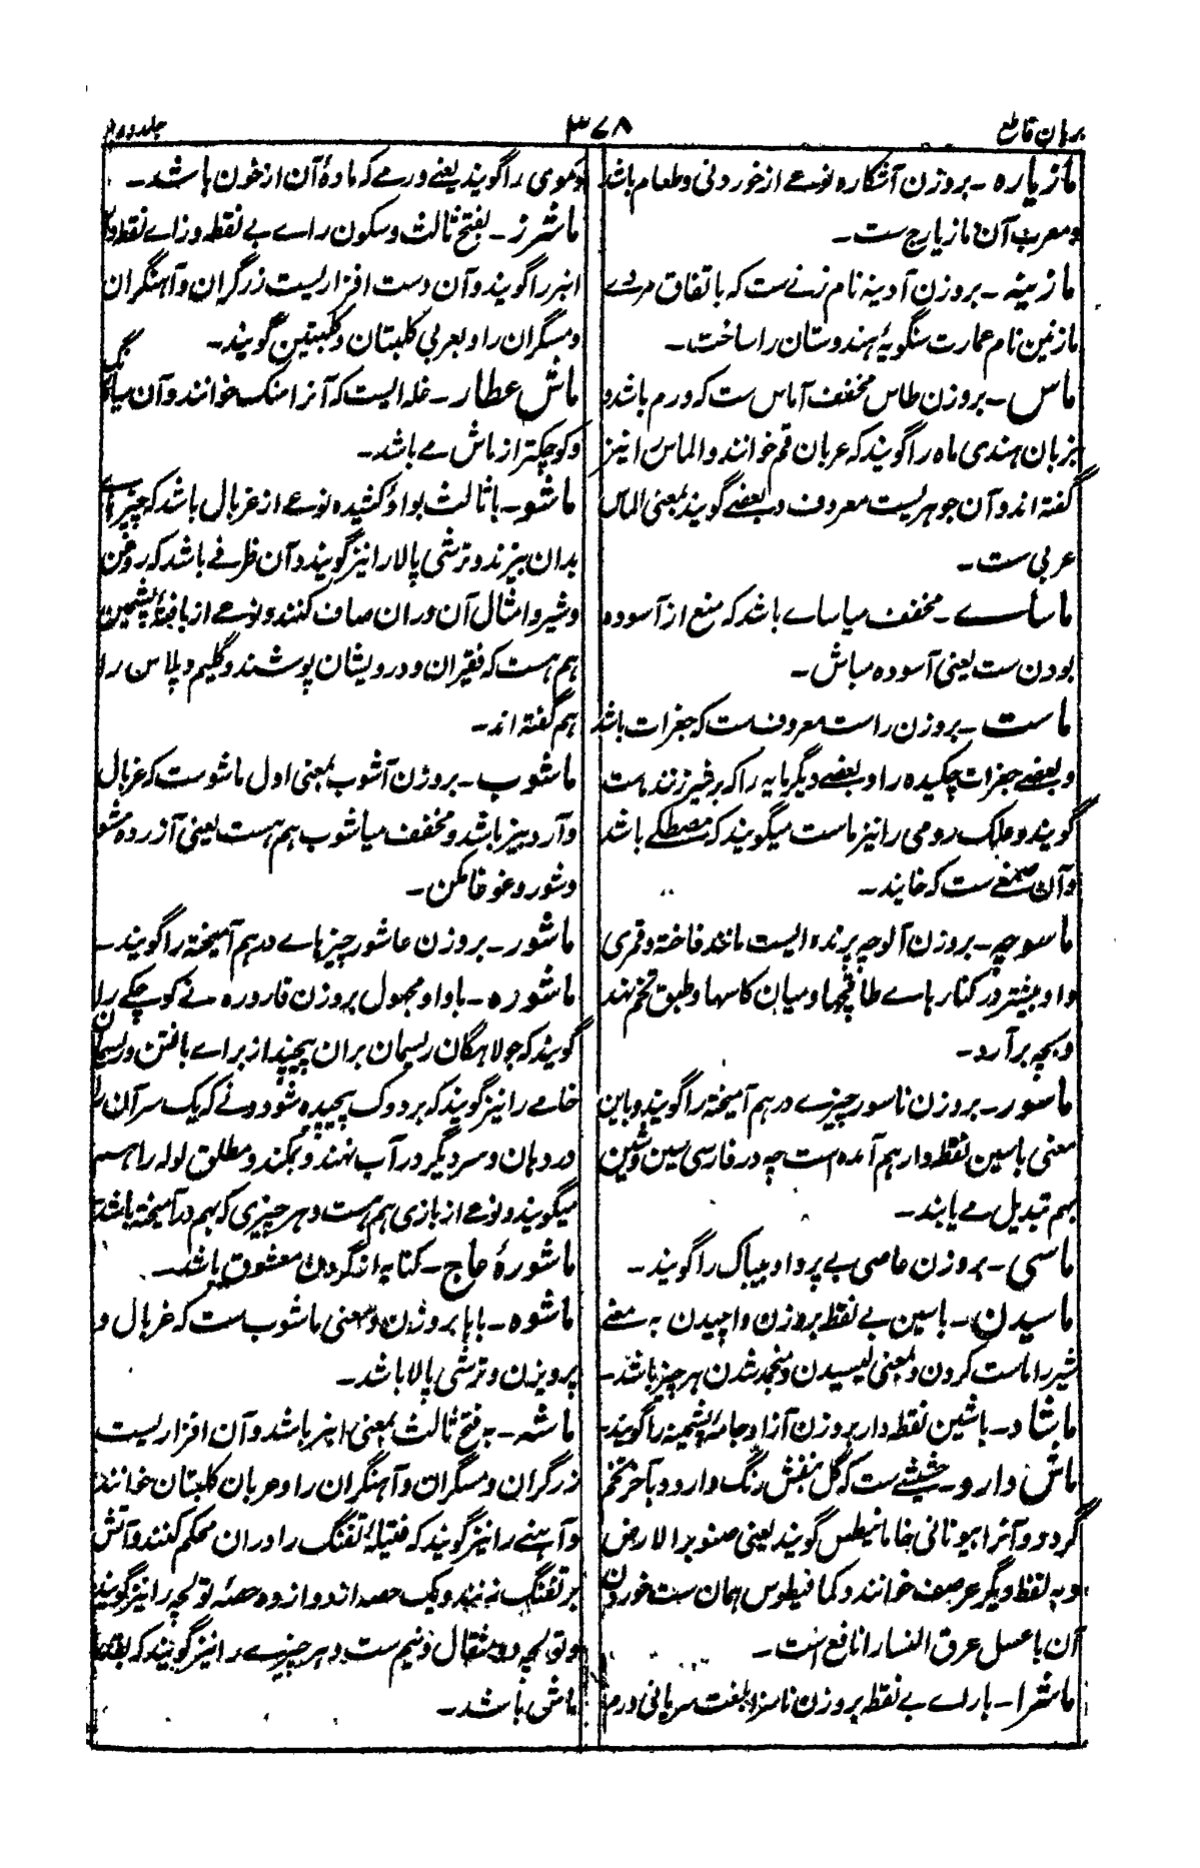 برهان قاطع
۳۷۸
جلد دوم
مازیاره ـ بروزن آشکاره نوعے از خوردنی و طعام باشد
و معرب آن مازیارج ست ـ
مازینه ـ بروزن آدینه نام زنے ست که باتفاق مردے
مازنین نام عمارت سنگویهٔ هندوستان را ساخت ـ
ماس ـ بروزن طاس مخفف آماس ست که ورم باشد و
بزبان هندی ماه را گویند که عربان قمر خوانند و الماس را نیز
گفته اند و آن جوهریست معروف و بعضے گویند بمعنی الماس
عربی ست ـ
ماساے ـ مخفف میاساے باشد که منع از آسوده
بودن ست یعنی آسوده مباش ـ
ماست ـ بروزن راست معروف ست که جغرات باشد
و بعضے جغرات چکیده را و بعضے دیگر مایه را که بر شیر زنند ماست
گویند و علک رومی را نیز ماست میگویند که مصطکے باشد
و آن صمغے ست که خایند ـ
ماسوچه ـ بروزن آلوچه پرنده ایست مانند فاخته و قمری
و او بیشتر در کنارهاے طاقچها و میان کاسها و طبق تخم نهد
و بچه برآرد ـ
ماسور ـ بروزن ناسور چیزے درهم آمیخته را گویند و باین
معنی باشین نقطه دار هم آمده است چه در فارسی سین و شین
بهم تبدیل مے یابند ـ
ماسی ـ بروزن عاصی بے پروا و بیباک را گویند ـ
ماسیدن ـ باسین بے نقطه بروزن واچیدن به معنے
شیر را ماست کردن و بمعنی لیسیدن و منجمد شدن هر چیز باشد ـ
ماشاد ـ باشین نقطه دار بروزن آزاد جامهٔ پشمینه را گویند ـ
ماش دارو ـ حشیشے ست که گل بنفش رنگ دارد و بآخر تخم
گردد و آنرا بیونانی خامانیطس گویند یعنی صنوبر الارض
و به لفظ دیگر عرصف خوانند و کمافیطوس همان ست خوردن
آن با عسل عرق النسا را نافع است ـ
ماشرا ـ باراے بے نقطه بروزن ناسزا بلغت سریانی ورم
دموی را گویند یعنے ورمے که مادهٔ آن از خون باشد ـ
ماشرز ـ بفتح ثالث و سکون راے بے نقطه و زاے نقطه دار
انبر را گویند و آن دست افزاریست زرگران و آهنگران
و مسگران را و بعربی کلبتان و کلبتین گویند ـ
ماش عطار ـ غله ایست که آنرا منگ خوانند و آن سیاه رنگ
و کوچکتر از ماش مے باشد ـ
ماشو ـ با ثالث بواو کشیده نوعے از غربال باشد که چیزهاے
بدان بیزند و ترشی پالا را نیز گویند و آن ظرفے باشد که روغن
و شیر و امثال آن دران صاف کنند و نوعے از بافتهٔ پشمین
هم هست که فقیران و درویشان پوشند و گلیم و پلاس را
هم گفته اند ـ
ماشوب ـ بروزن آشوب بمعنی اول ماشوست که غربال
و آرد بیز باشد و مخفف میاشوب هم هست یعنی آزرده مشو
و شور و غوغا مکن ـ
ماشور ـ بروزن عاشور چیزهاے درهم آمیخته را گویند ـ
ماشوره ـ باواو مجهول بروزن قاروره نے کوچکے را
گویند که جولاهگان ریسمان بران پیچند از براے بافتن و ریسمان
خامے را نیز گویند که بر دوک پیچیده شود و نے که یک سر آن را
در دهان و سر دیگر در آب نهند و بمکند و مطلق لوله را هم
میگویند و نوعے از بازی هم هست و هر چیزی که بهم درآمیخته باشد
ماشورهٔ عاج ـ کنایه از گردن معشوق باشد ـ
ماشوه ـ باها بروزن و معنی ماشوب ست که غربال و
پرویزن و ترشی پالا باشد ـ
ماشه ـ به فتح ثالث بمعنی انبر باشد و آن افزاریست
زرگران و مسگران و آهنگران را و عربان کلبتان خوانند
و آهنے را نیز گویند که فتیلهٔ تفنگ را دران محکم کنند و آتش
بر تفنگ زنند و یک حصه از دوازده حصهٔ تولچه را نیز گویند
و تولچه دو مثقال و نیم ست و هر چیزے را نیز گویند که بقدر
ماش باشد ـ